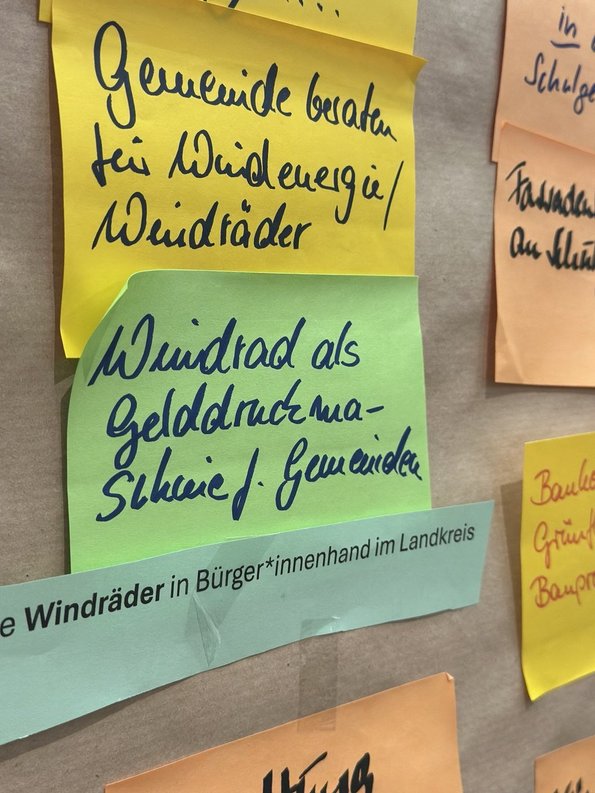 Gemeinde beraten
für Windenergie/
Windräder
Windrad als
Gelddruckma-
schine f. Gemeinden
e Windräder in Bürger*innenhand im Landkreis
in
Schulge
Fassaden
an Schu
Banke
Grünf
Baupro